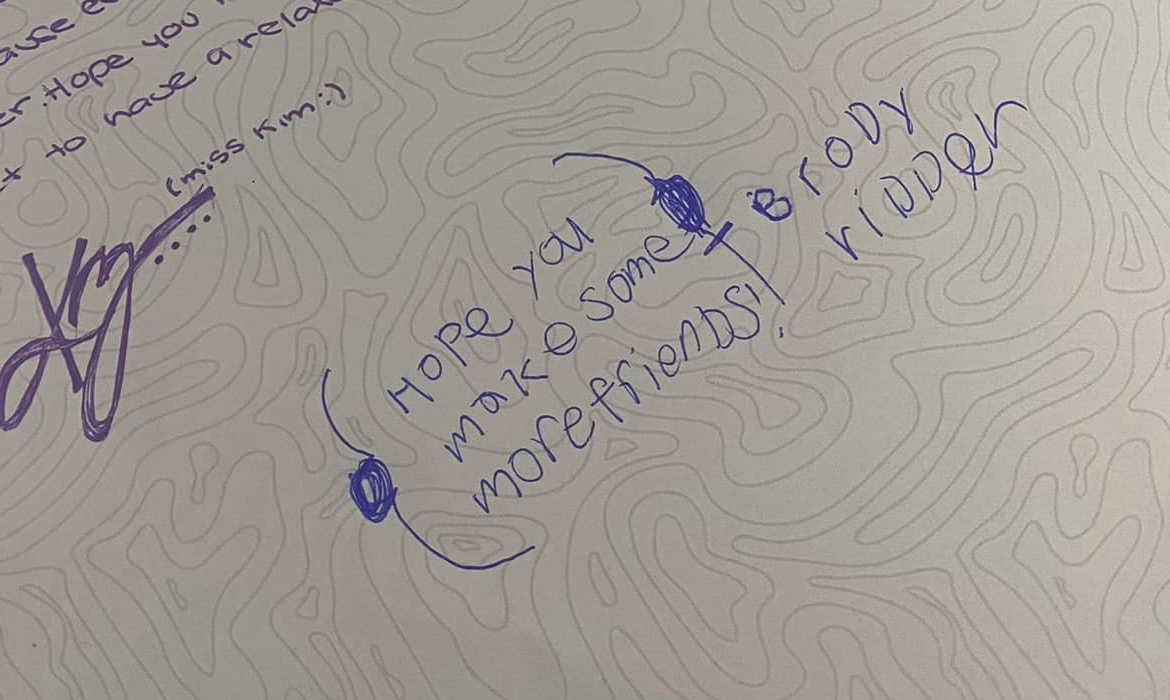 er. Hope you
to have a rela
(miss Kim:)
Hope you
make some
more friends!
Brody
ridder